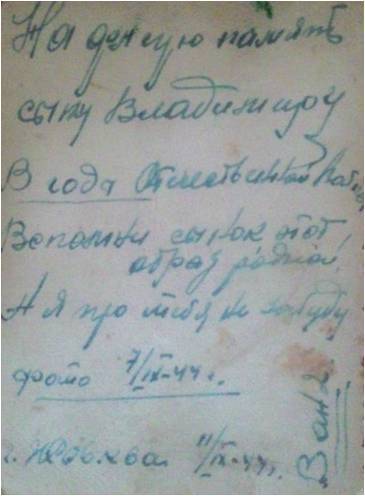 На долгую память
сыну Владимиру
В года Отечественной
Вспомни сынок этот
образ родной!
А я про тебя не забуду
фото 7/IX-44 г.
г. 11/IX-44 г.
Ваня